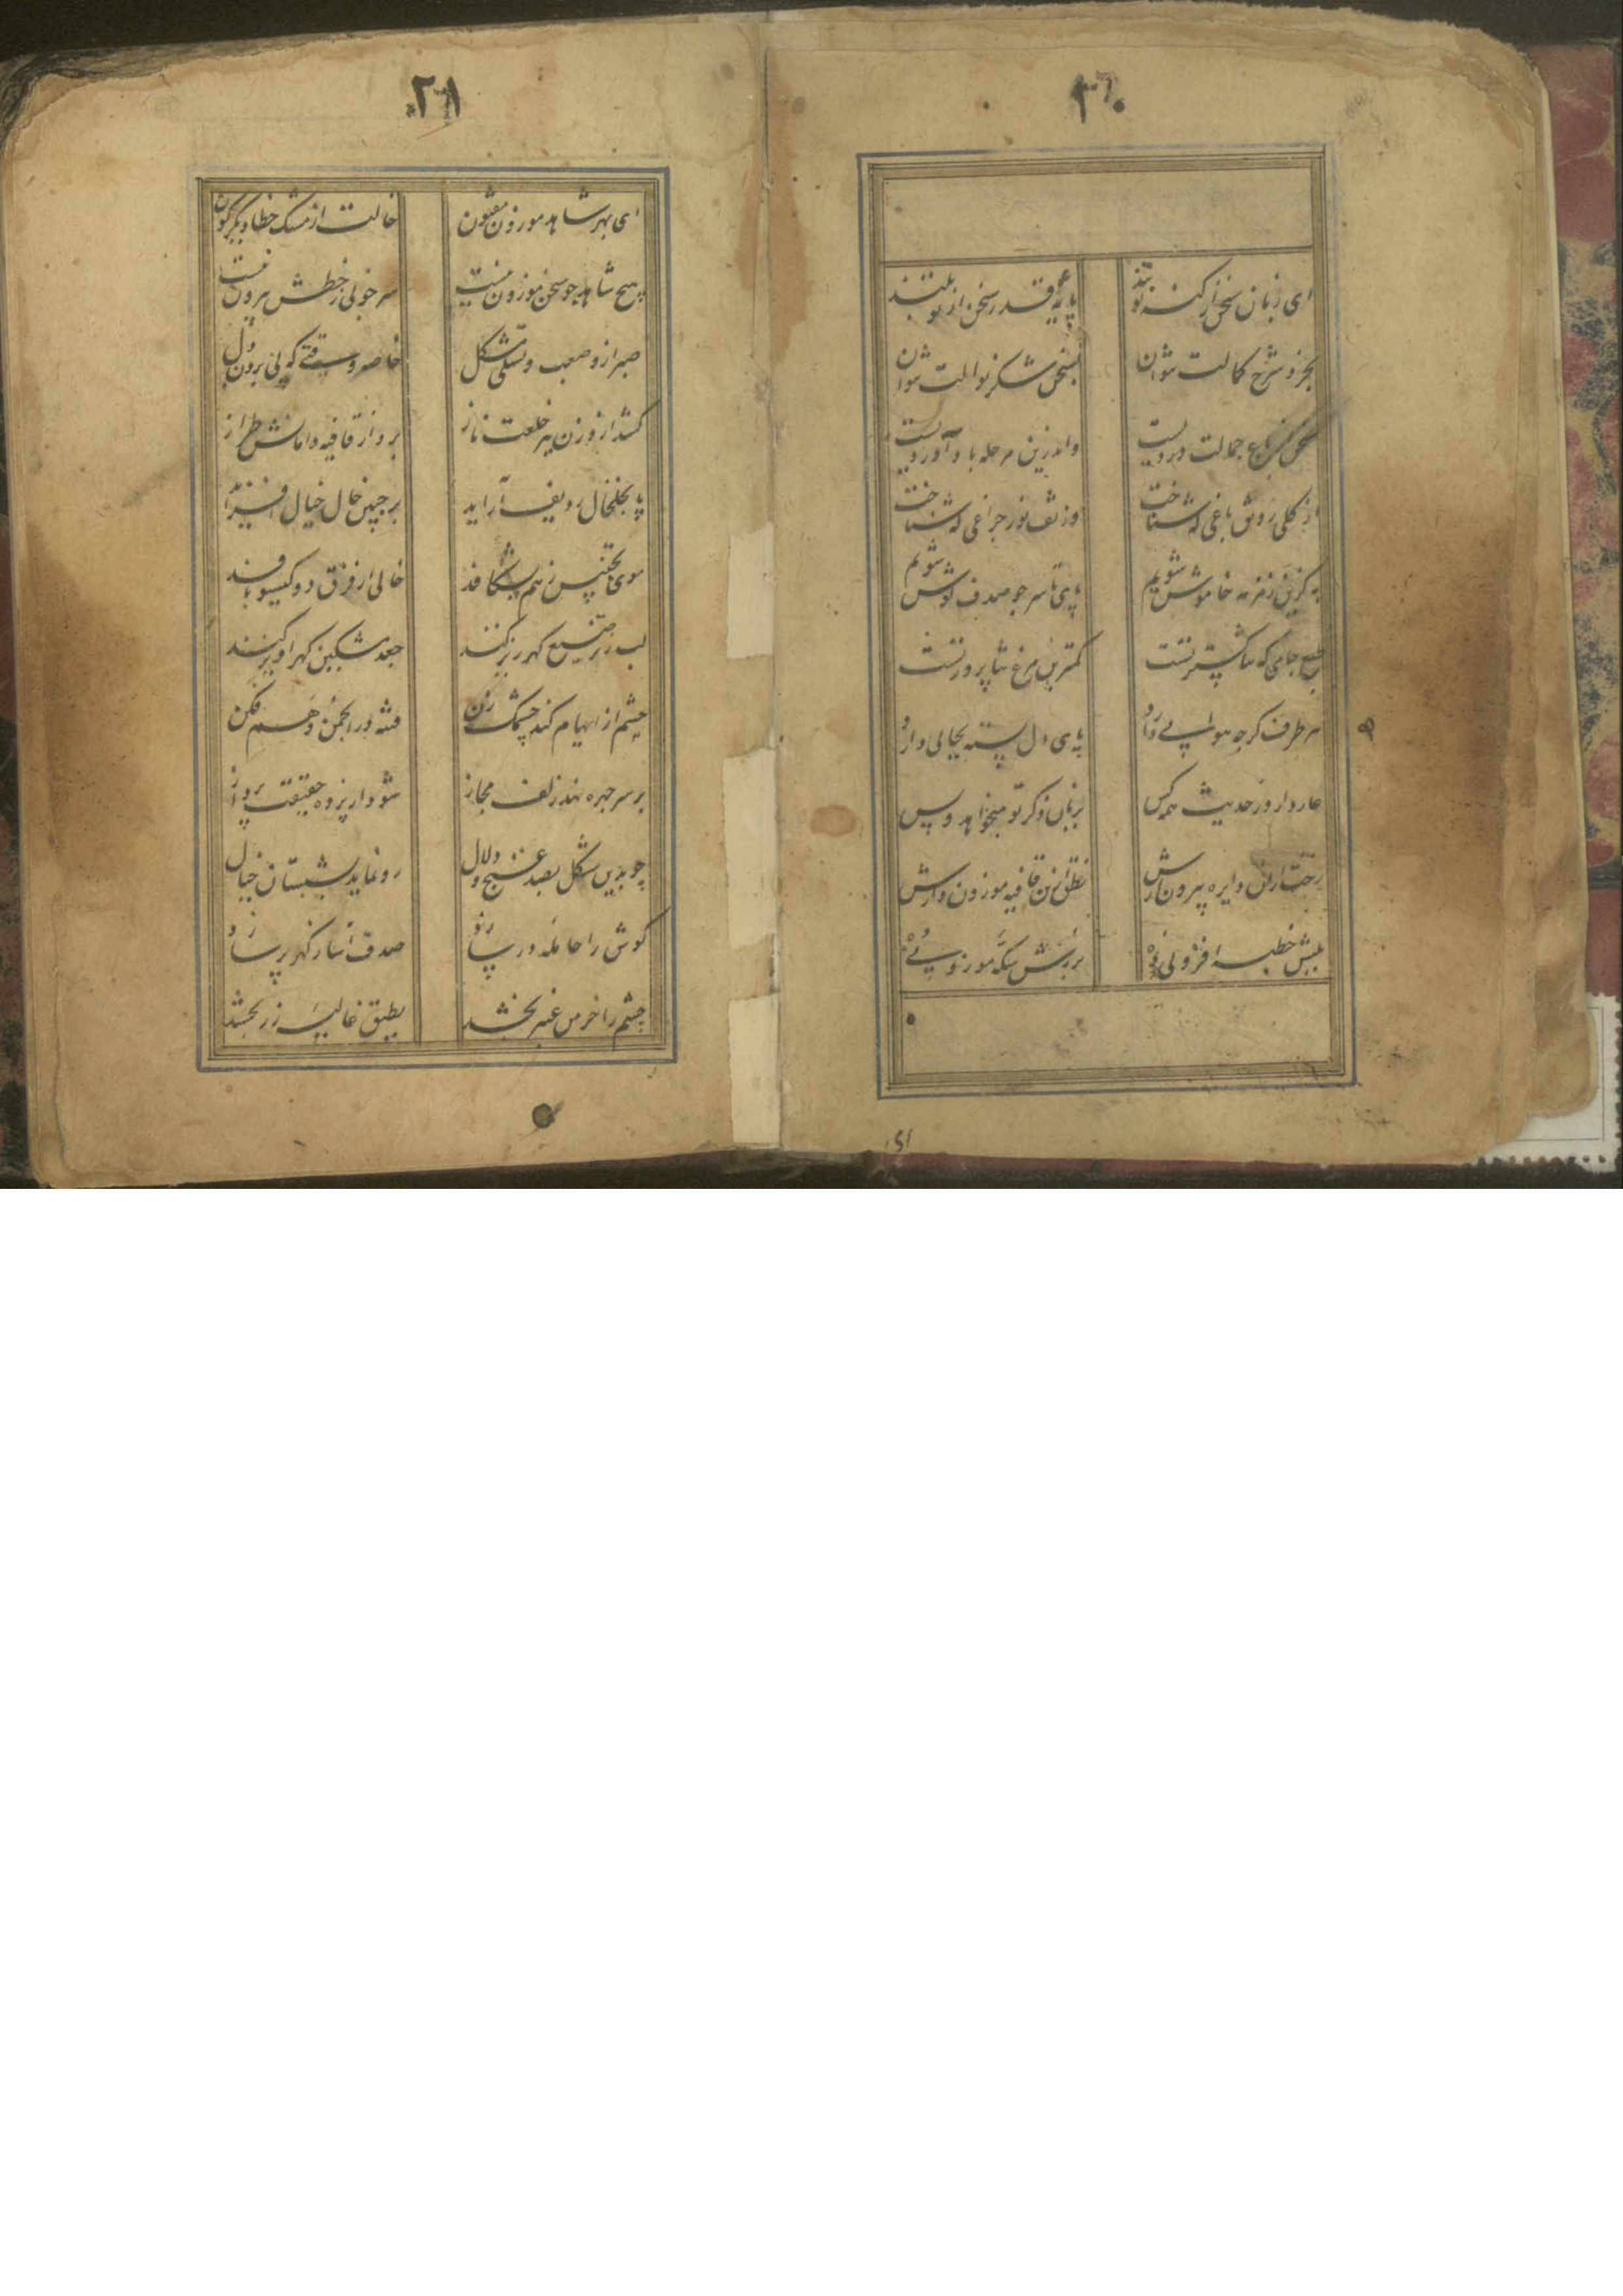 ۲۰
ای زبان سخن از کنه تو بند پایه قدر سخن از تو بلند
بخرد شرح کمالت نتوان بسخن شکر نوالت نتوان
باغ جمالت وردیست واندرین مرحله باد آوردیست
از کلی رونق باغی که شناخت وز تف نور چراغی که شناخت
به کزین زمزمه خاموش شویم پای تا سر چو صدف کوش شویم
طبع جامی که ثنا کستر تست کمترین مرغ ثنا پرور تست
هر طرف کرچه هوایی دارد پای دل بسته بجایی دارد
عار دارد ز حدیث همه کس بر زبان ذکر تو میخواهد و بس
رخت ازان دایره بیرون دارش نطق ازین قافیه موزون دارش
بلبش خطبه افزونی ده بر زرش سکه موزونی ده
ای
۲۱
ای بهر شاهد موزون مفتون حالت از مشک خطا دیگرگون
هیچ شاهد چو سخن موزون نیست سر خوبی ز خطش بیرون نیست
صبر ازو صعب و تسلی مشکل خاصه وقتی که پی بردن دل
کشد از وزن ببر خلعت ناز برد از قافیه دامانش طراز
پا بخلخال ردیف آراید بر جبین خال خیال افزاید
موی تجنیس ز هم بشکافد خالی از فرق دو کیسو بافد
لب ز ترصیع کهر ریز کند جعد مشکین کهر آویز کند
چشم از ایهام کند چشمک زن فتنه در انجمن وهم فکن
بر سر چهره نهد زلف مجاز شود از پرده حقیقت پرداز
چو بدین شکل بصد غنج و دلال رو نماید بشبستان خیال
کوش را حامله در سازد صدف آسا ز کهر پر سازد
چشم را خرمن عنبر بخشد بطبق غالیه زر بخشد